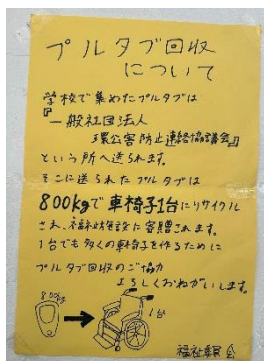 プルタブ回収
について
学校で集めたプルタブは
『一般社団法人
環公害防止連絡協議会』
という所へ送られます。
そこに送られたプルタブは
800kgで車椅子1台にリサイクル
され、福祉施設に寄贈されます。
1台でも多くの車椅子を作るために
プルタブ回収のご協力
よろしくおねがいします。
800kg
1台
福祉委員会